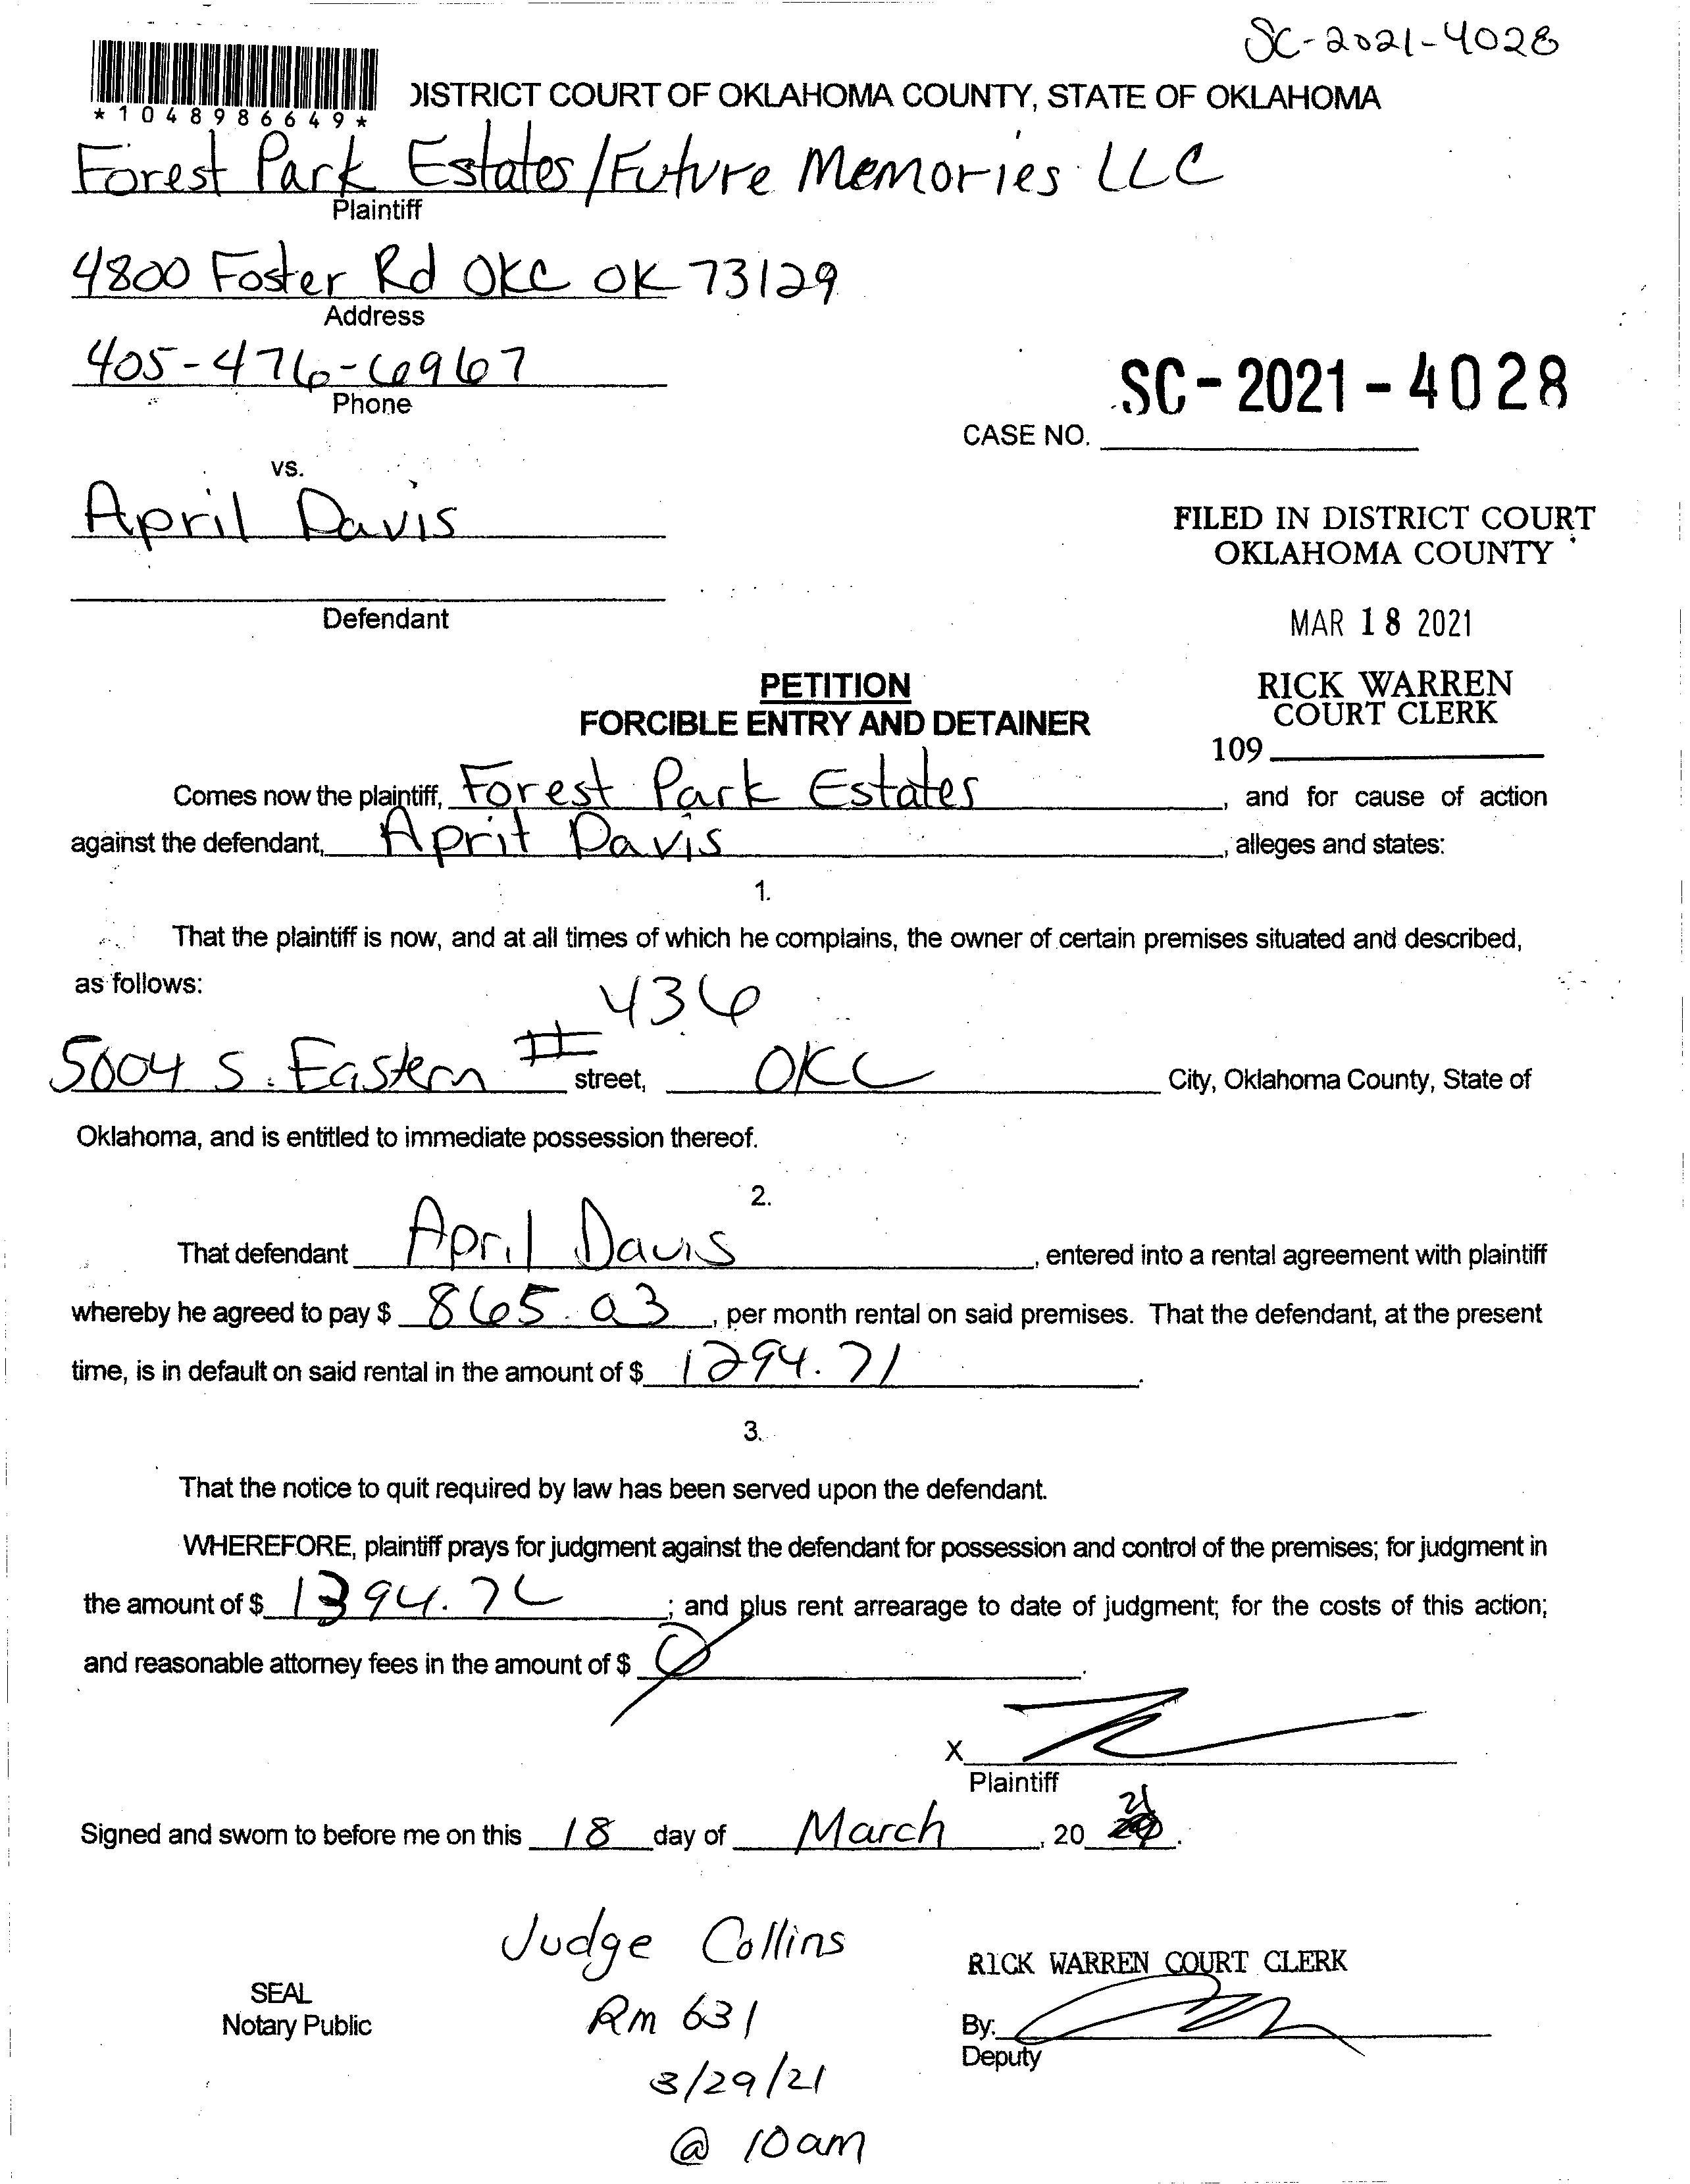 SC-2021-4028
*1048986649*
DISTRICT COURT OF OKLAHOMA COUNTY, STATE OF OKLAHOMA
Forest Park Estates/Future Memories LLC
Plaintiff
4800 Foster Rd OKC OK 73129
Address
405-476-6967
Phone
SC-2021-4028
CASE NO.
vs.
April Davis
FILED IN DISTRICT COURT
OKLAHOMA COUNTY
Defendant
MAR 18 2021
PETITION
RICK WARREN
COURT CLERK
FORCIBLE ENTRY AND DETAINER
109
Comes now the plaintiff, Forest Park Estates, and for cause of action
against the defendant, April Davis, alleges and states:
1.
That the plaintiff is now, and at all times of which he complains, the owner of certain premises situated and described,
as follows:
436
5004 S. Eastern # street, OKC City, Oklahoma County, State of
Oklahoma, and is entitled to immediate possession thereof.
2.
That defendant April Davis, entered into a rental agreement with plaintiff
whereby he agreed to pay $ 865.03, per month rental on said premises. That the defendant, at the present
time, is in default on said rental in the amount of $ 1294.71.
3.
That the notice to quit required by law has been served upon the defendant.
WHEREFORE, plaintiff prays for judgment against the defendant for possession and control of the premises; for judgment in
the amount of $ ; and plus rent arrearage to date of judgment; for the costs of this action;
and reasonable attorney fees in the amount of $ 0.
X
Plaintiff
Signed and sworn to before me on this 18 day of March, 20 21.
Judge Collins
RICK WARREN COURT CLERK
SEAL
Notary Public
Rm 631
By:
Deputy
3/29/21
@ 10am